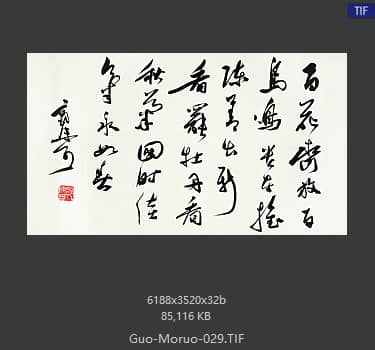 TIF
百花齊放百
鳥鳴貴在推
陳善出新
看罷牡丹看
秋菊四時佳
氣永如春
郭沫若
6188x3520x32b
85,116 KB
Guo-Moruo-029.TIF